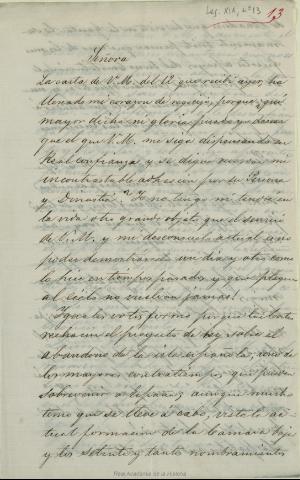 Leg. XIX, nº 13
13
Señora
La carta de V. M. del 12 que recibí ayer, ha
llenado mi corazon de regocijo, porque ¿qué
mayor dicha ni gloria puedo yo desear
que el que V. M. me siga dispensando su
Real confianza y se digne
incontrastable adhesion por su Persona
y Dinastia? Yo no tengo ni tendré en
la vida otro grande objeto que el servicio
de V. M. y mi desconsuelo actual es no
poder demostrarselo un dia y otro como
lo hice en tiempos pasados y que plegue
al Cielo no vuelvan jamas!
Iguales votos formo porque
rechacen el proyecto de ley sobre el
abandono de la isla española, uno de
los mayores que pueden
sobrevenir a España; aunque mucho
temo que se lleve a cabo, vista la ac-
tual formacion de la Camara baja
y los setenta y tantos nombramientos
Real Academia de la Historia